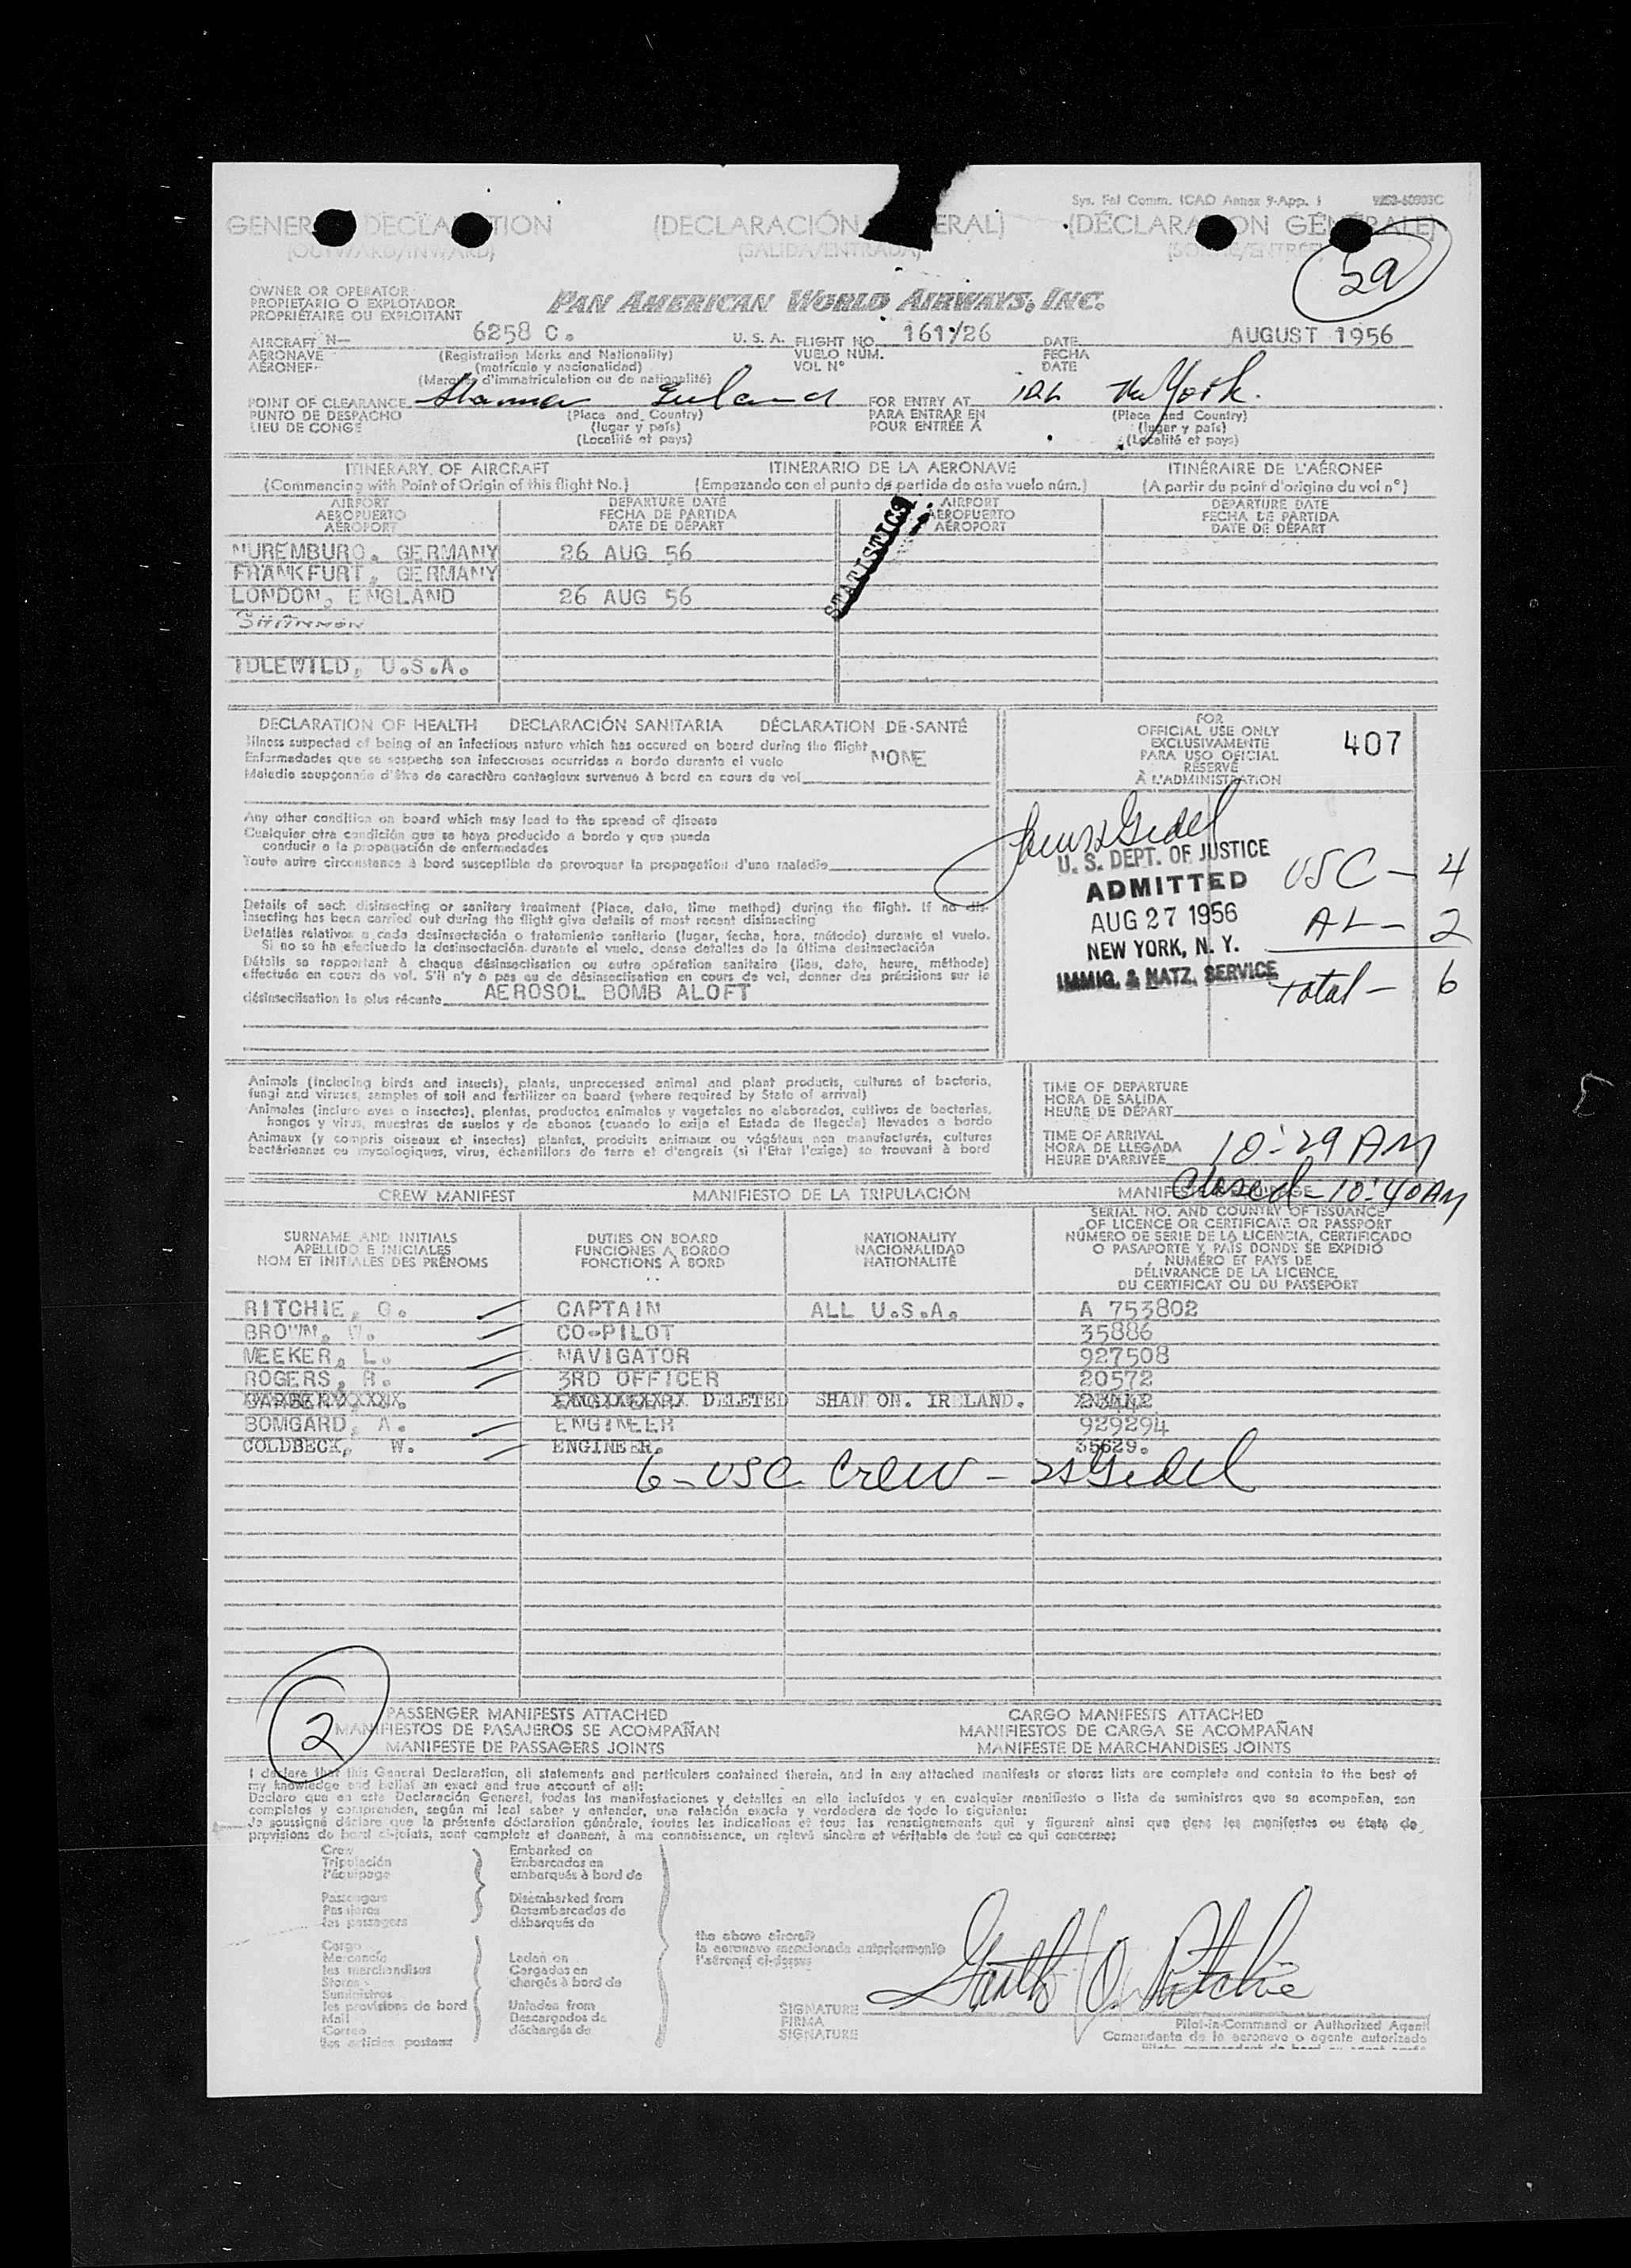 Sys. Fal Comm. ICAO Annex 9-App. 1
GENERAL DECLARATION (DECLARACIÓN GENERAL) (DÉCLARATION GÉNÉRALE)
(OUTWARD/INWARD) (SALIDA/ENTRADA)
29
OWNER OR OPERATOR
PROPIETARIO O EXPLOTADOR
PROPRIÉTAIRE OU EXPLOITANT
PAN AMERICAN WORLD AIRWAYS, INC.
AIRCRAFT N- 6258 C. U. S. A. FLIGHT NO. 161/26 DATE AUGUST 1956
AERONAVE (Registration Marks and Nationality) VUELO NÚM. FECHA
AÉRONEF (matrícula y nacionalidad) VOL Nº DATE
(Marques d'immatriculation ou de nationalité)
POINT OF CLEARANCE Shannon Ireland FOR ENTRY AT New York.
PUNTO DE DESPACHO (Place and Country) PARA ENTRAR EN (Place and Country)
LIEU DE CONGÉ (lugar y país) POUR ENTRÉE À (lugar y país)
(Localité et pays) (Localité et pays)
ITINERARY OF AIRCRAFT ITINERARIO DE LA AERONAVE ITINÉRAIRE DE L'AÉRONEF
(Commencing with Point of Origin of this flight No.) (Empezando con el punto de partida de este vuelo núm.) (A partir du point d'origine du vol nº)
AIRPORT DEPARTURE DATE AIRPORT DEPARTURE DATE
AEROPUERTO FECHA DE PARTIDA AEROPUERTO FECHA DE PARTIDA
AÉROPORT DATE DE DÉPART AÉROPORT DATE DE DÉPART
STATISTICS
NUREMBURG, GERMANY 26 AUG 56
FRANKFURT, GERMANY
LONDON, ENGLAND 26 AUG 56
SHANNON
IDLEWILD, U.S.A.
DECLARATION OF HEALTH DECLARACIÓN SANITARIA DÉCLARATION DE SANTÉ
Illness suspected of being of an infectious nature which has occured on board during the flight
Enfermedades que se sospeche son infecciosas ocurridas a bordo durante el vuelo NONE
Maladie soupçonnée d'être de caractère contagieux survenue à bord en cours de vol
Any other condition on board which may lead to the spread of disease
Cualquier otra condición que se haya producido a bordo y que pueda
conducir a la propagación de enfermedades
Toute autre circonstance à bord susceptible de provoquer la propagation d'une maladie
Details of each disinsecting or sanitary treatment (Place, date, time method) during the flight. If no dis-
insecting has been carried out during the flight give details of most recent disinsecting
Detalles relativos a cada desinsectación o tratamiento sanitario (lugar, fecha, hora, método) durante el vuelo.
Si no se ha efectuado la desinsectación durante el vuelo, dense detalles de la última desinsectación
Détails se rapportant à chaque désinsectisation ou autre opération sanitaire (lieu, date, heure, méthode)
effectuée en cours de vol. S'il n'y a pas eu de désinsectisation en cours de vol, donner des précisions sur la
désinsectisation la plus récente AEROSOL BOMB ALOFT
FOR
OFFICIAL USE ONLY
EXCLUSIVAMENTE
PARA USO OFICIAL
RÉSERVÉ
À L'ADMINISTRATION
407
U. S. DEPT. OF JUSTICE
ADMITTED
AUG 27 1956
NEW YORK, N. Y.
IMMIG. & NATZ. SERVICE
USC - 4
AL - 2
Total - 6
Animals (including birds and insects), plants, unprocessed animal and plant products, cultures of bacteria,
fungi and viruses, samples of soil and fertilizer on board (where required by State of arrival)
Animales (incluso aves e insectos), plantas, productos animales y vegetales no elaborados, cultivos de bacterias,
hongos y virus, muestras de suelos y de abonos (cuando lo exija el Estado de llegada) llevados a bordo
Animaux (y compris oiseaux et insectes) plantes, produits animaux ou végétaux non manufacturés, cultures
bactériennes ou mycologiques, virus, échantillons de terre et d'engrais (si l'État l'exige) se trouvant à bord
TIME OF DEPARTURE
HORA DE SALIDA
HEURE DE DÉPART
TIME OF ARRIVAL
HORA DE LLEGADA
HEURE D'ARRIVÉE 10:29 AM
Closed - 10:40 AM
CREW MANIFEST MANIFIESTO DE LA TRIPULACIÓN
SURNAME AND INITIALS DUTIES ON BOARD NATIONALITY SERIAL NO. AND COUNTRY OF ISSUANCE
APELLIDO E INICIALES FUNCIONES A BORDO NACIONALIDAD OF LICENCE OR CERTIFICATE OR PASSPORT
NOM ET INITIALES DES PRÉNOMS FONCTIONS À BORD NATIONALITÉ NÚMERO DE SERIE DE LA LICENCIA, CERTIFICADO
O PASAPORTE Y PAÍS DONDE SE EXPIDIÓ
NUMÉRO ET PAYS DE
DÉLIVRANCE DE LA LICENCE,
DU CERTIFICAT OU DU PASSEPORT
RITCHIE, G. CAPTAIN ALL U.S.A. A 753802
BROWN, W. CO-PILOT 35886
MEEKER, L. NAVIGATOR 927508
ROGERS, R. 3RD OFFICER 20572
DELETED SHANNON. IRELAND.
BOMGARD, A. ENGINEER 929294
COLDBECK, W. ENGINEER. 35629.
6 - USC Crew - Gedel
2
PASSENGER MANIFESTS ATTACHED CARGO MANIFESTS ATTACHED
MANIFIESTOS DE PASAJEROS SE ACOMPAÑAN MANIFIESTOS DE CARGA SE ACOMPAÑAN
MANIFESTE DE PASSAGERS JOINTS MANIFESTE DE MARCHANDISES JOINTS
I declare that this General Declaration, all statements and particulars contained therein, and in any attached manifests or stores lists are complete and contain to the best of
my knowledge and belief an exact and true account of all:
Declaro que en esta Declaración General, todas las manifestaciones y detalles en ella incluídos y en cualquier manifiesto o lista de suministros que se acompañan, son
completos y comprenden, según mi leal saber y entender, una relación exacta y verdadera de todo lo siguiente:
Je soussigné déclare que la présente déclaration générale, toutes les indications et tous les renseignements qui y figurent ainsi que dans les manifestes ou états de
provisions de bord ci-joints, sont complets et donnent, à ma connaissance, un relevé sincère et véritable de tout ce qui concerne:
Crew Embarked on
Tripulación Embarcados en
l'équipage embarqués à bord de
Passengers Disembarked from
Pasajeros Desembarcados de
les passagers débarqués de
Cargo
Mercancía Laden on
les marchandises Cargados en
Stores chargés à bord de
Suministros
les provisions de bord Unladen from
Mail Descargados de
Correo déchargés de
les articles postaux
the above aircraft
la aeronave mencionada anteriormente
l'aéronef ci-dessus
SIGNATURE Garth O. Ritchie
FIRMA
SIGNATURE
Pilot-in-Command or Authorized Agent
Comandante de la aeronave o agente autorizado